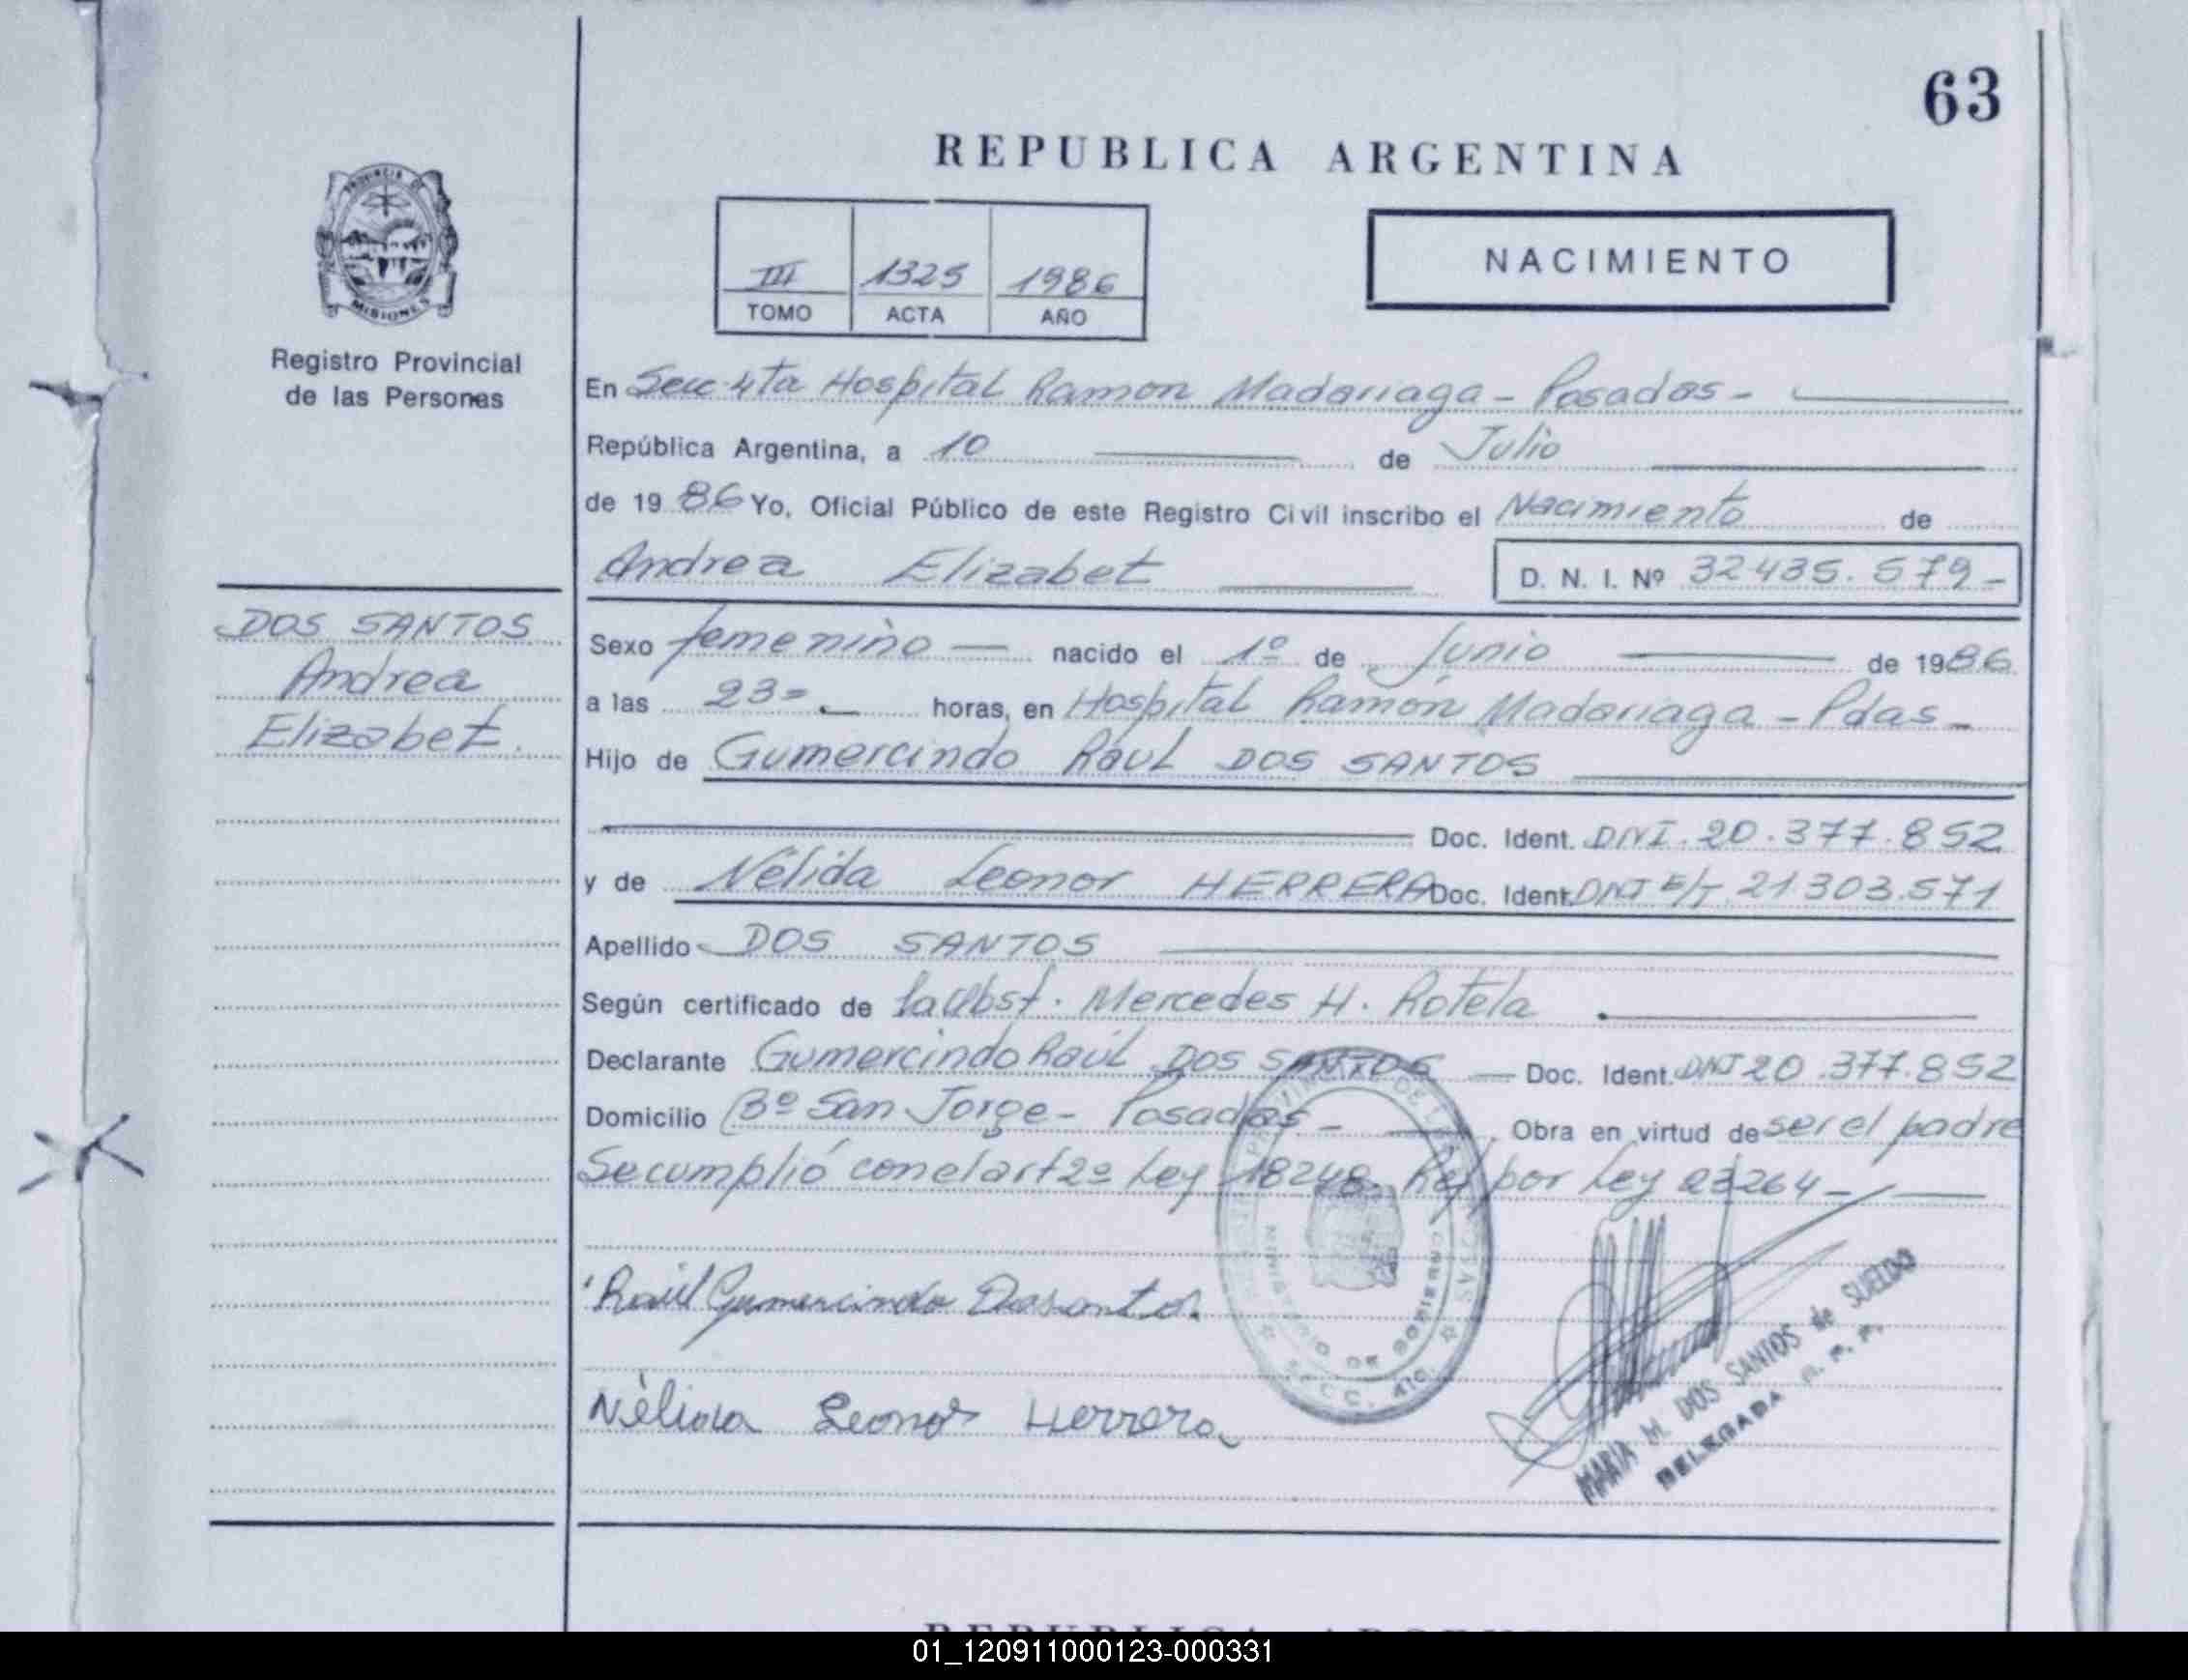 63
REPUBLICA ARGENTINA
PROVINCIA DE
MISIONES
Registro Provincial
de las Personas
III 1325 1986
TOMO ACTA AÑO
NACIMIENTO
En Secc 4ta Hospital Ramon Madariaga - Posadas -
República Argentina, a 10 de Julio
de 1986 Yo, Oficial Público de este Registro Civil inscribo el Nacimiento de
Andrea Elizabet D. N. I. Nº 32435.579-
DOS SANTOS
Andrea
Elizabet.
Sexo femenino nacido el 1º de Junio de 1986.
a las 23= horas, en Hospital Ramón Madariaga - Pdas -
Hijo de Gumercindo Raul DOS SANTOS
Doc. Ident. DNI. 20.377.852
y de Nélida Leonor HERRERA Doc. Ident. DNI E/T. 21.303.571
Apellido DOS SANTOS
Según certificado de la Obst. Mercedes H. Rotela
Declarante Gumercindo Raúl DOS SANTOS - Doc. Ident. DNI 20.377.852
Domicilio Bº San Jorge - Posadas - Obra en virtud de ser el padre
Se cumplió con el art 2º Ley 18248. Ref por Ley 23264 -
Raúl Gumercindo Dosantos.
Nélida Leonor Herrera
MINISTERIO DE GOBIERNO
SECC. 4ta.
MARIA M. DOS SANTOS de SUELDO
DELEGADA R. P. P.
REPUBLICA ARGENTINA
01_120911000123-000331